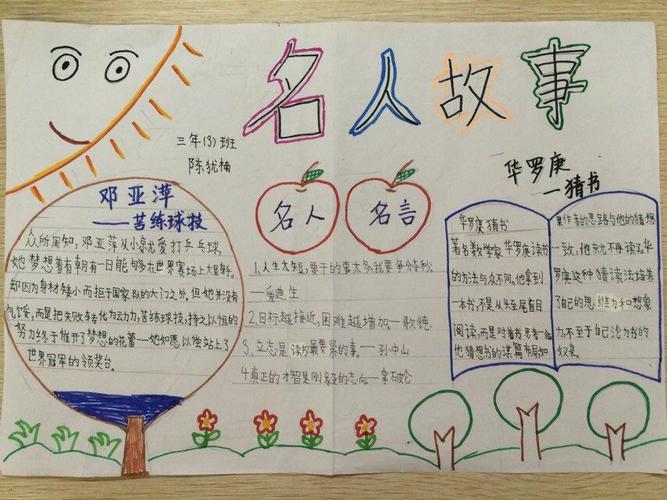 名人故事
三年(3)班
陈犹楠
邓亚萍
——苦练球技
众所周知，邓亚萍从小就尤爱打乒乓球，
她梦想着有朝有一日能够在世界赛场上大显身手。
却因为身材矮小而拒于国家队的大门之外，但她并没有
气馁，而是把失败转化为动力，苦练球技，持之以恒的
努力终于催开了梦想的花蕾—她如愿以偿站上了
世界冠军的领奖台。
名人
名言
1.人生太短，要干的事太多，我要争分夺秒
—爱迪生
2.目标越接近，困难越增加—歌德
3.立志是读书最要紧的事—孙中山
4.真正的才智是刚毅的志向—拿破伦
华罗庚
—猜书
华罗庚猜书
著名数学家华罗庚读书
的方法与众不同。他拿到
一本书，不是从头至尾看目
阅读，而是对着书思考一会
他猜想书的谋篇布局如
果作者的思路与他的猜想
一致，他就不再读了。华
罗庚这种猜读法培养
了自己的思维力和想象
力，不至于自己沦为书的
奴隶。